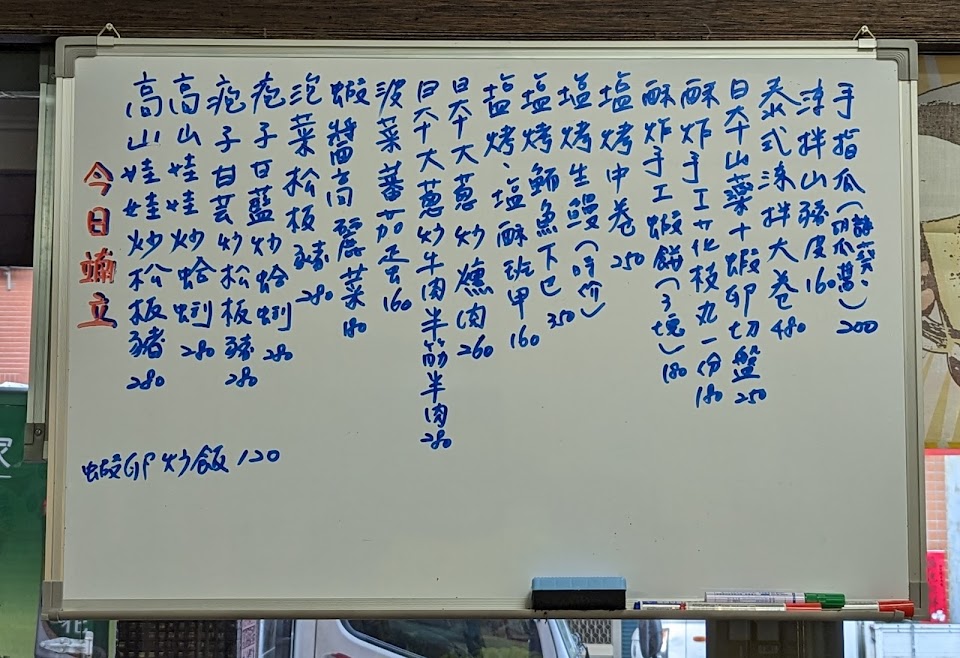 手指瓜(胡瓜、醬)200
涼拌山豬皮160
泰式涼拌大卷480
日本山藥+蝦卵切盤250
酥炸手工花枝丸一份180
酥炸手工蝦餅(3塊)180
塩烤中卷250
塩烤生鰻(時价)
塩烤鮪魚下巴350
塩烤、塩酥班甲160
日本大蔥炒燻肉260
日本大蔥炒牛肉半筋半肉280
波菜蕃茄 160
蝦醬高麗菜180
泡菜松板豬280
疱子甘藍炒蛤蜊280
疱子甘芸炒松板豬280
高山娃娃炒蛤蜊280
高山娃娃炒松板豬280
今日 立
蝦卵炒飯120